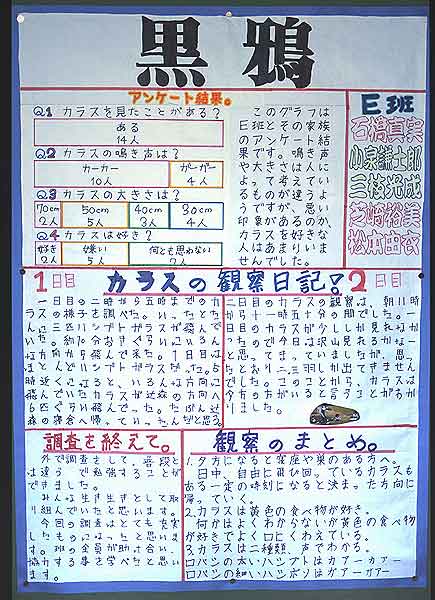 黒鴉
アンケート結果。
Q1 カラスを見たことがある?
ある
14人
Q2 カラスの鳴き声は?
カーカー
10人
ガーガー
4人
Q3 カラスの大きさは?
70cm
2人
50cm
5人
40cm
3人
30cm
4人
Q4 カラスは好き?
好き
2人
嫌い
5人
何とも思わない
このグラフは
E班とその家族
のアンケート結
果です。鳴き声
や大きさは人に
よって考えてい
るものが違うよ
うですが、悪い
印象があるのか、
カラスを好きな
人はあまりいま
せんでした。
E班
石橋真実
小泉謙士郎
松本田衣
1日目
カラスの観察日記!
2日目
一日目の二時から五時までのカ
ラスの様子を調べた。
二日目のカラスの観察は、朝11時
から十一時五十分の間でした。一
日目のカラスが少ししか見れなか
ったので今日は沢山見れるかな
と思ってまっていましたが、思っ
たとおり二、三羽しか出てきません
でした。このことから、カラスは
夕方の方がいると言うことがわか
りました。
調査を終えて。
外で調査をして、普段と
は違う形で勉強することが
できました。
みんな生き生きとして取
り組んでいたと思います。
今回の調査はとても充実
したものになったと思いま
す。班の全員が助け合い、
協力する事を学べたと思い
ます。
観察のまとめ。
1.夕方になると寝座や巣のある方へ。
日中、自由に飛び回っているカラスも
ある一定の時刻になると決まった方向に
帰っていく。
2.カラスは黄色の食べ物が好き。
何かはよくわからないが黄色の食べ物
が好きでよく口にくわえている。
3.カラスは二種類、声でわかる。
口バシの太いハシブトはカアーカアー
口バシの細いハシボソはガアーガアー